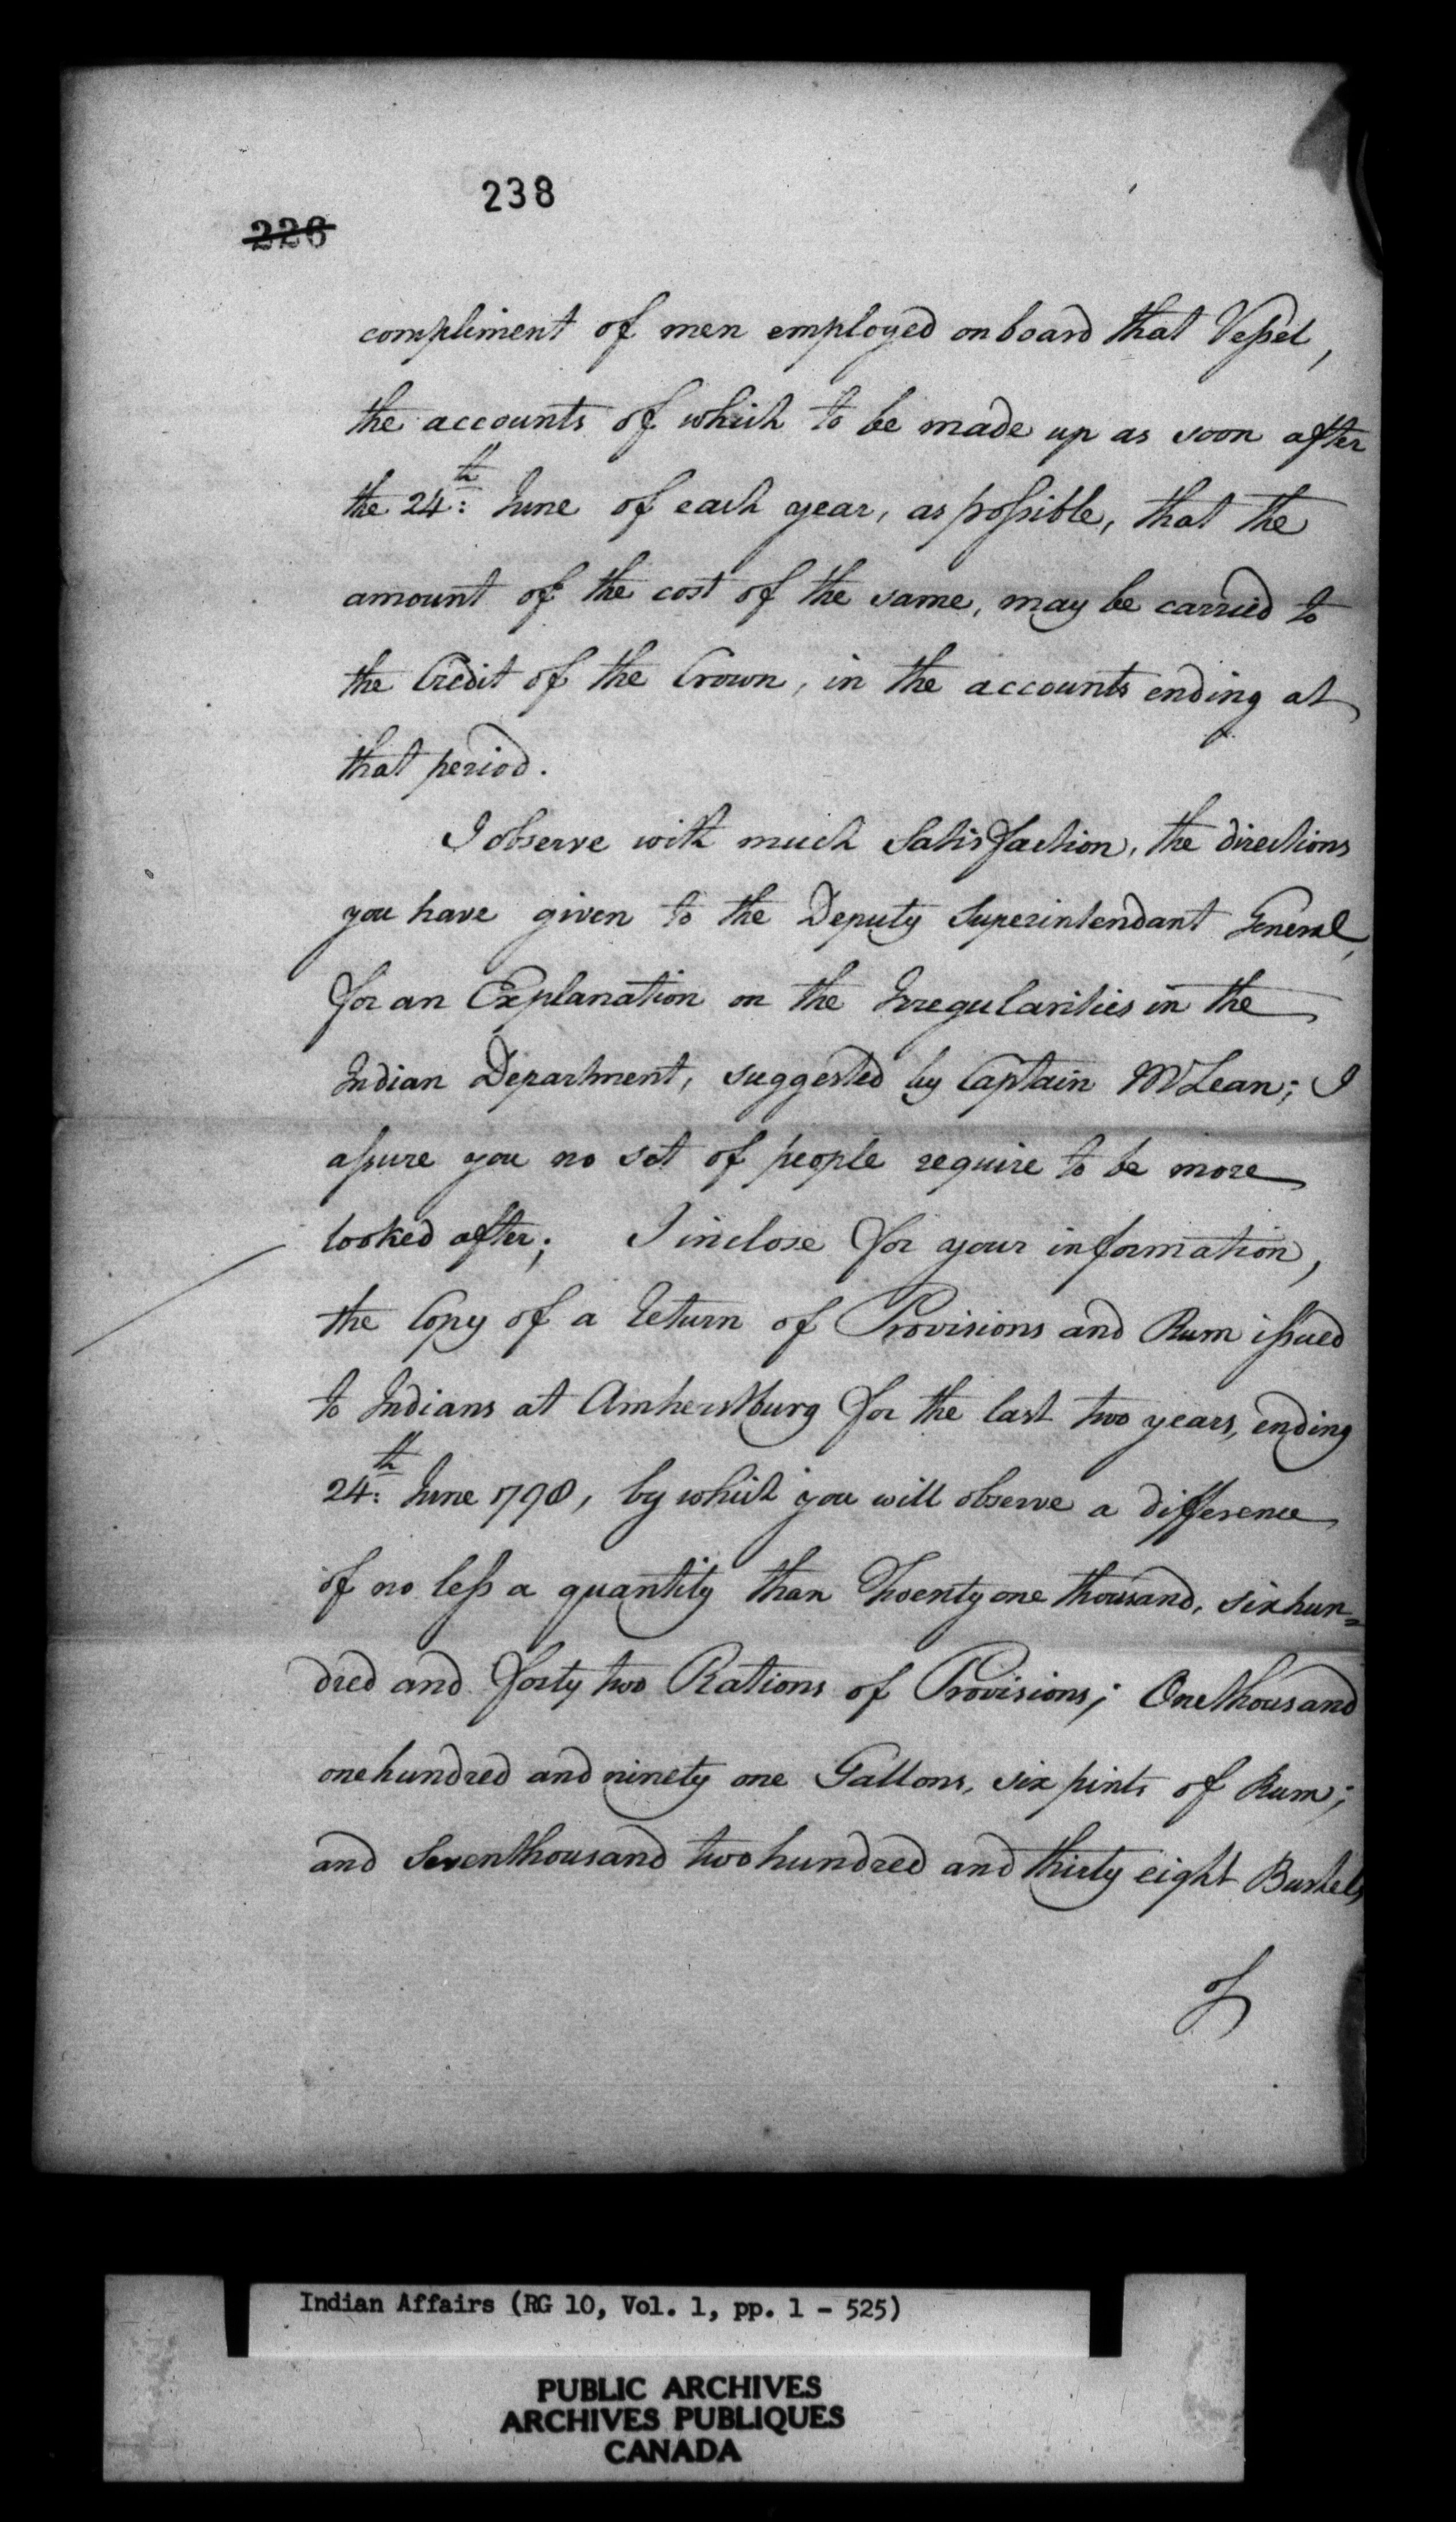 238
226
compliment of men employed on board that Vessel,
the accounts of which to be made up as soon after
the 24th: June of each year, as possible, that the
amount of the cost of the same, may be carried to
the Credit of the Crown, in the accounts ending at
that period.
I observe with much Satisfaction, the directions
you have given to the Deputy Superintendant General,
for an Explanation on the Irregularities in the
Indian Department, suggested by Captain McLean; I
assure you no set of people require to be more
looked after; I inclose for your information,
the Copy of a Return of Provisions and Rum issued
to Indians at Amherstburg for the last two years, ending
24th: June 1798, by which you will observe a difference
of no less a quantity than Twenty one thousand, six hun=
dred and forty two Rations of Provisions; One thousand
one hundred and ninety one Gallons, six pints of Rum;
and Seven thousand two hundred and thirty eight Bushels
of
Indian Affairs (RG 10, Vol. 1, pp. 1 - 525)
PUBLIC ARCHIVES
ARCHIVES PUBLIQUES
CANADA